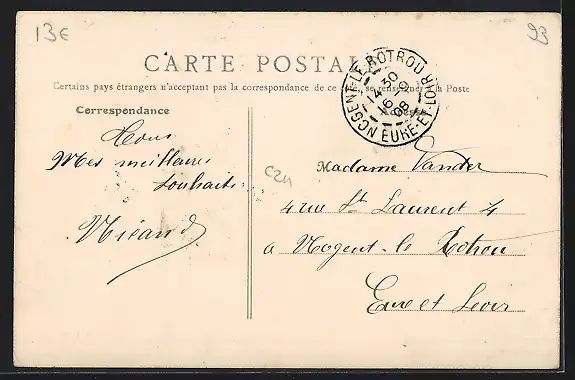 13€
93
CARTE POSTALE
NOGENT-LE-ROTROU
14 30
16
08
EURE-ET-LOIR
Certains pays étrangers n'acceptent pas la correspondance de ce se renseigner à la Poste
Correspondance
Mes meilleures
souhaits
Madame Vander
4 rue St Laurent 4
à Nogent-le Rotrou
Eure et Loir